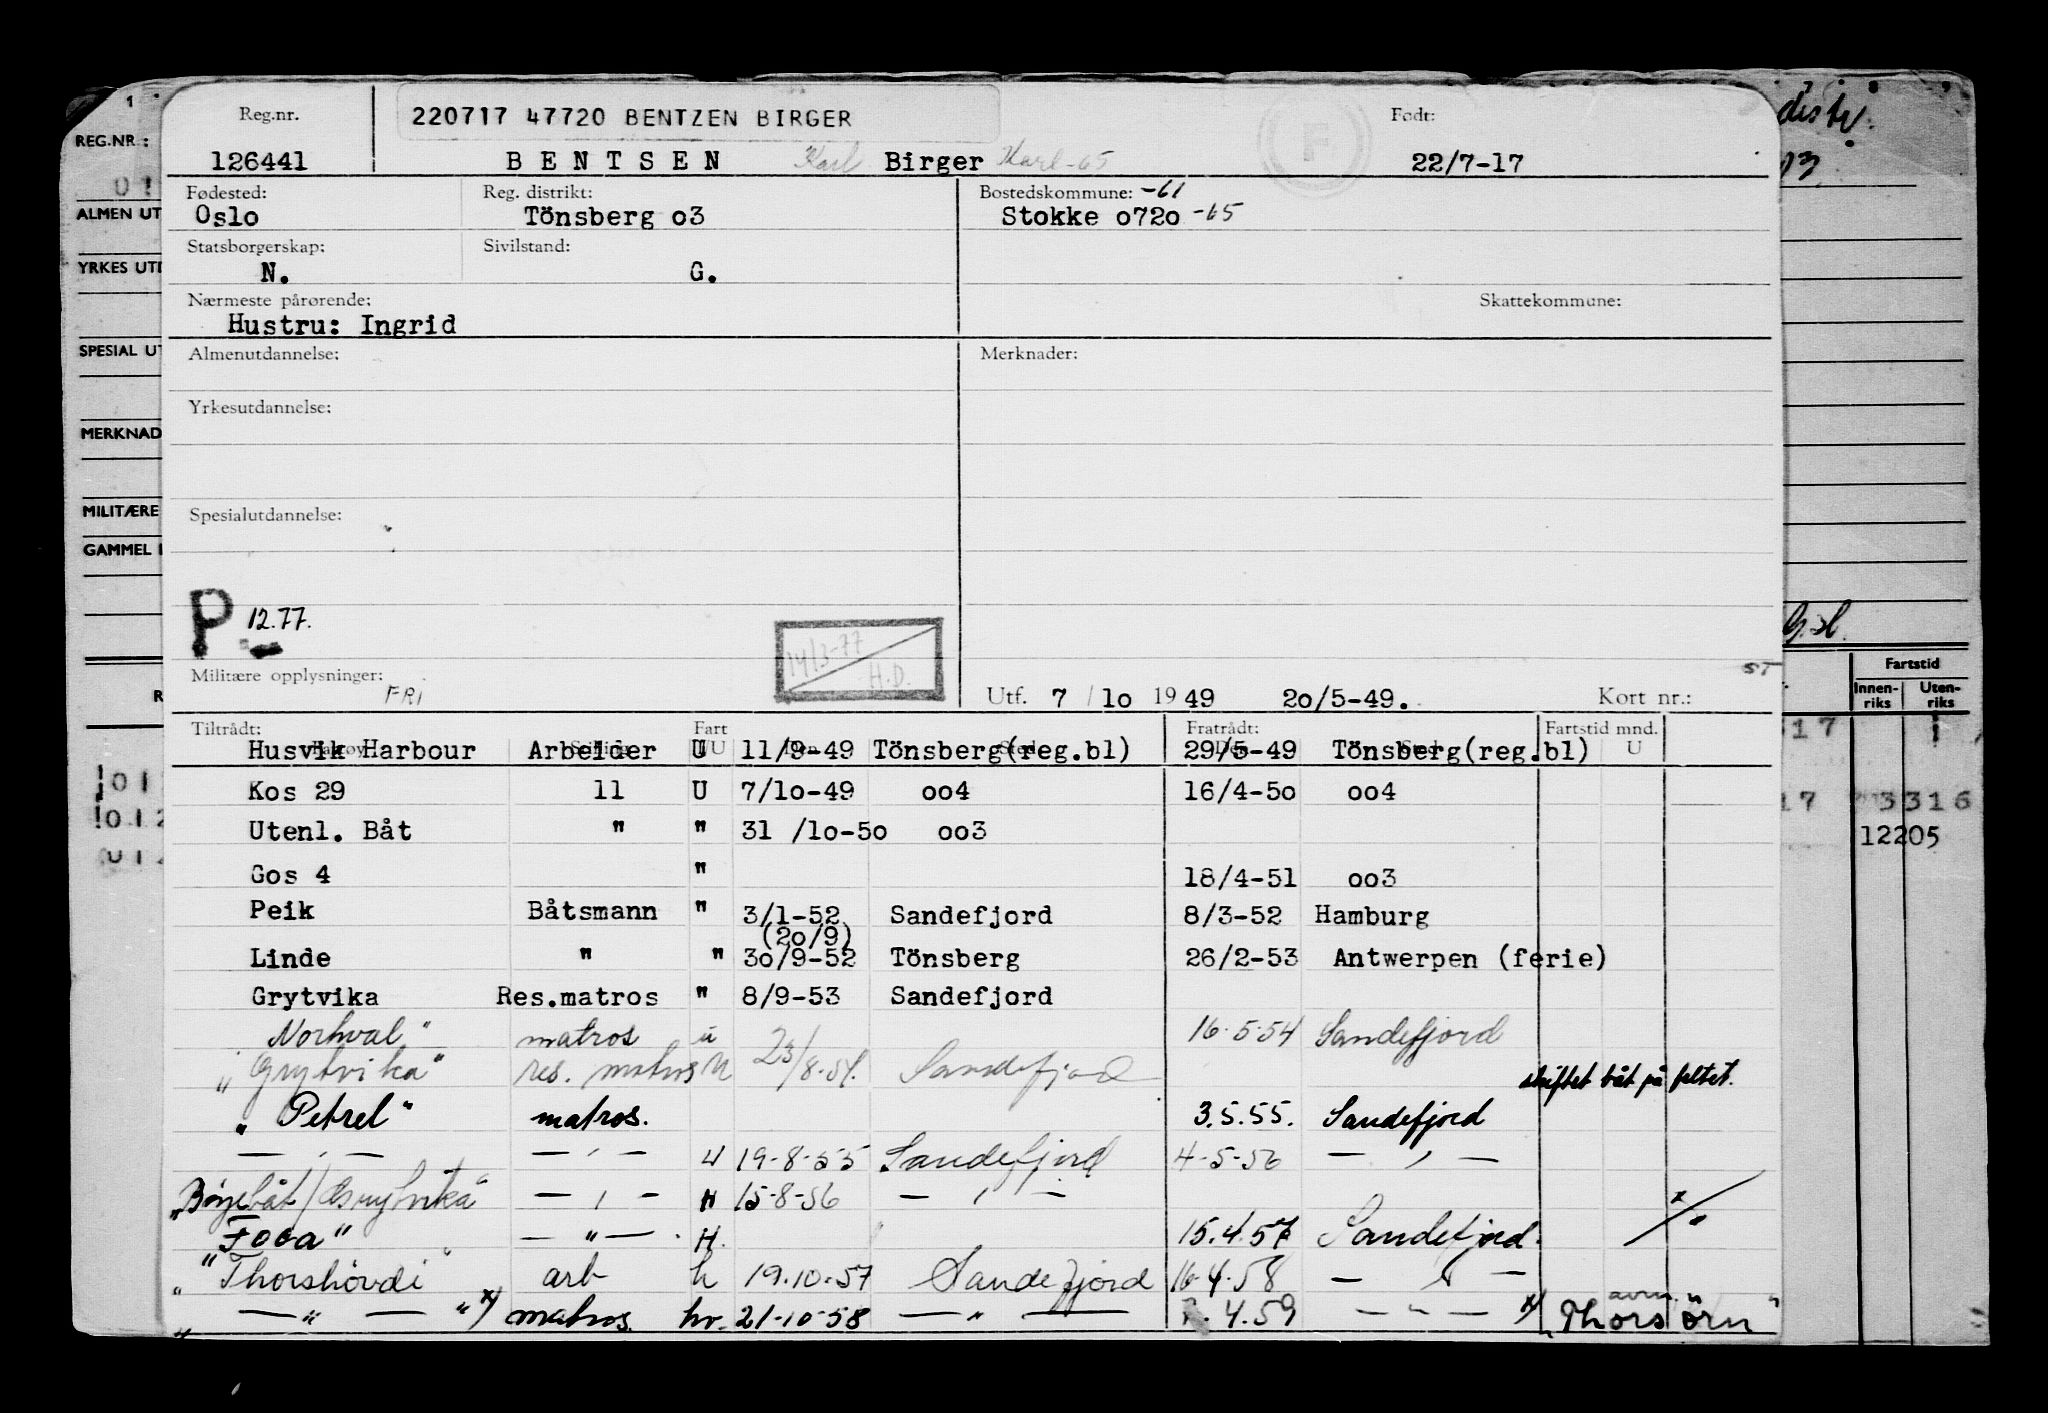 Reg.nr. 220717 47720 BENTZEN BIRGER Født:
126441 BENTSEN Karl Birger Karl-65 22/7-17
Fødested: Reg. distrikt: Bostedskommune: -61
Oslo Tönsberg o3 Stokke o72o -65
Statsborgerskap: Sivilstand:
N. G.
Nærmeste pårørende: Skattekommune:
Hustru: Ingrid
Almenutdannelse: Merknader:
Yrkesutdannelse:
Spesialutdannelse:
P 12.77.
14/3-77 H.D.
Militære opplysninger: FRI Utf. 7/1o 1949 2o/5-49. Kort nr.: ST
Tiltrådt: Fart Fratrådt: Fartstid mnd.
Husvik Harbour Arbeider U 11/9-49 Tönsberg(reg.bl) 29/5-49 Tönsberg(reg.bl) U
Kos 29 11 U 7/1o-49 oo4 16/4-5o oo4
Utenl. Båt " " 31 /1o-5o oo3
Gos 4 " 18/4-51 oo3
Peik Båtsmann " 3/1-52 Sandefjord 8/3-52 Hamburg
(2o/9)
Linde " " 3o/9-52 Tönsberg 26/2-53 Antwerpen (ferie)
Grytvika Res.matros " 8/9-53 Sandefjord
Norhval" matros u 16.5.54 Sandefjord
"Grytvika" res. matros U 23/8-54. Sandefjord skiftet båt på feltet.
"Petrel" matros. 3.5.55. Sandefjord
— " — — " — U 19-8-55 Sandefjord 4-5-56 — " —
"Bøyebåt/Grytvika" — " — H 15-8-56 — " — x/"
"Foca" — " — H. 15.4.57 Sandefjord.
"Thorshövdi" arb h 19.10-57 Sandefjord 16-4-58 — " —
" — " — " x/ matros. hv. 21-10-58 — " — .4.59 — " — x/ "Thorsörn"
REG.NR.:
ALMEN UT
YRKES UTD
SPESIAL UT
MERKNAD
MILITÆRE
GAMMEL
Fartstid
Innen-riks Uten-riks
17 3316
12205